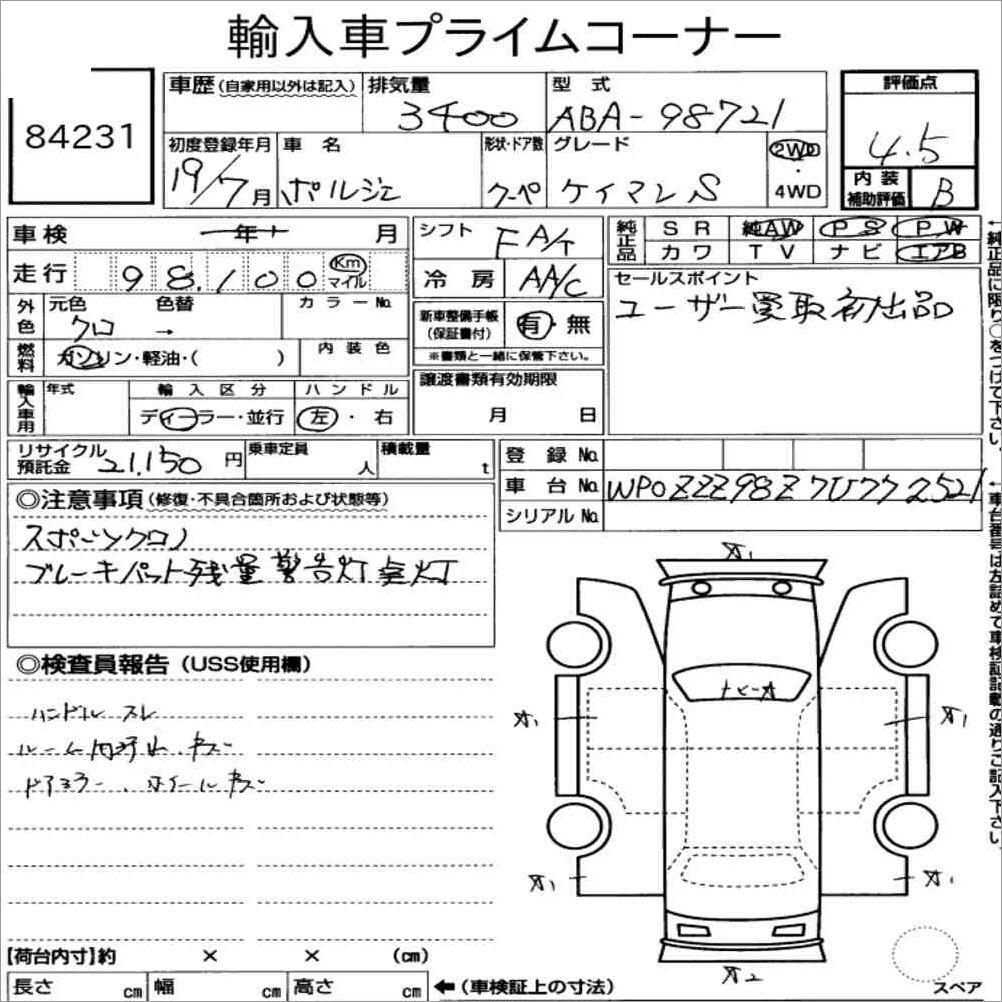 輸入車プライムコーナー
84231
車歴(自家用以外は記入) 排気量 3400 型式 ABA-98721
初度登録年月 19/7月 車名 ポルシェ 形状・ドア数 クーペ グレード ケイマンS 2WD・4WD
評価点 4.5
内装補助評価 B
車検 年 月
走行 98,100 Km マイル
外色 元色 クロ 色替 → カラーNo.
燃料 ガソリン・軽油・( ) 内装色
輸入車用 年式 輸入区分 ディーラー・並行 ハンドル 左・右
シフト FA/T
冷房 AA/C
新車整備手帳(保証書付) 有・無
※書類と一緒に保管下さい。
譲渡書類有効期限
月 日
純正品 SR 純AW PS PW
カワ TV ナビ エアB
セールスポイント
ユーザー買取初出品
←純正品に限り○をつけて下さい。
リサイクル預託金 21,150円 乗車定員 人 積載量 t
登録No.
車台No. WP0ZZZ98Z7U772521
シリアルNo.
←車台番号は左詰めで車検証記載の通りご記入下さい。
◎注意事項(修復・不具合箇所および状態等)
スポーツクロノ
ブレーキパット残量警告灯点灯
◎検査員報告(USS使用欄)
ハンドル スレ
ルーム内 キズ
ドアミラー、ホイールキズ
A1
A1
A1
A1
A1
A2
【荷台内寸】約 × × (cm)
長さ cm 幅 cm 高さ cm ←(車検証上の寸法)
スペア